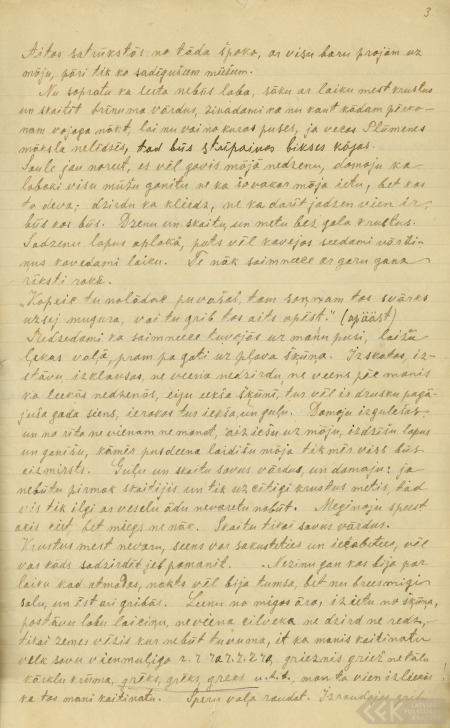 3
Aitas satrūkstas no tāda špoka, ar visu baru projām uz
māju, pāri tik ko sadīgušam mūšum.
Nu sapratu ka lieta nebūs laba, sāku ar laiku mest krustus
un skaitīt brīnuma vārdus, zinādami ka nu kaut kādam pēeko-
nam vajaga nākt, lai nu vai no kuras puses, ja vecās Plūmenes
māksla nelīdzēs, tad būs strīpainas bikses kājās.
Saule jau noreit, es vēl govis mājā nedzenu, domāju ka
labāki visu mūžu ganītu ne ka šovakar mājā ietu, bet kas
to deva; dzirdu ka kliedz, ne ka darīt jadzen vien ir
būs kas būs. Dzenu un skaitu, un metu bez gala krustus.
Sadzenu lopus aplokā, pats vēl kavējos
nus kavedami laiku. Te nāk saimniece ar garu gana
rīksti rokā.
„Kāpēc tu nolādāc puvāšas, tam
uz sej mugura, vai tu grib tas aits apēst." (apāāst)
Redzedami ka saimniece tuvojās uz manu pusi, laižu
ļekas vaļā, prom pa gati uz pļava šķūņa. Izskatos, iz-
stāvu izklausos, ne viena nedzirdu, ne viens pēc manis
ka liekās nedzenās, eiju iekšā šķūnī, tur vēl ir drusku pagā-
jušā gada siens, ierokos tur iekšā, un guļu. Domāju izgulēšos,
un no rīta ne vienam ne manot, aiziešu uz māju, izdzīšu lopus
un ganīšu, kāmēr pusdeena laidīšu mājā tik mēr viss būs
aizmirsts. Guļu un skaitu savus vārdus, un domāju: ja
nebūtu pirmāk skaitījis un tik uzcītīgi krustus metis, tād
vis tik ilgi ar veselu ādu nevarētu nobūt. Meginaju speest
acis ciet, bet miegs ne nāk. Skaitu tikai savus vārdus.
Krustus mest nevaru, seens var sakustēties un iečabēties, vēl
var kāds sadzirdēt jeb pamanīt. Nezinu gan kas bija par
laiku kad atmodos, nakts vēl bija tumša, bet nu breesmīgi
salu, un ēst arī gribās. Leenu no migas āra, izietu no šķūņa,
pastāvu labu laiciņu, ne viena cilveka ne dzird ne redz,
tikai zemes vēzis kur ne būt tuvumā, it kā manis kaitinātu
velk savu vienmuļīgo r. r. r. r. r. r. r., grieznis griež netālu
kārklu krūmā, grēks, grēks, greks u.t.t., man tā vien izlikās
ka tas mani kaitinātu. Speru vaļā raudāt.